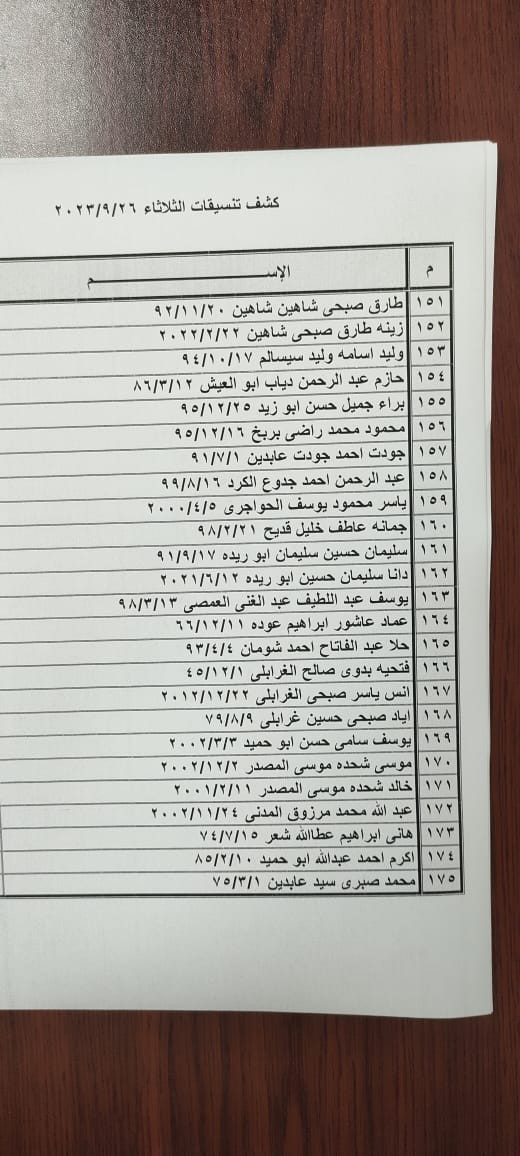 كشف تنسيقات الثلاثاء ٢٠٢٣/٩/٢٦
م الإســــــــم
١٥١ طارق صبحى شاهين شاهين ٩٢/١١/٢٠
١٥٢ زينه طارق صبحى شاهين ٢٠٢٢/٢/٢٢
١٥٣ وليد اسامه وليد سيسالم ٩٤/١٠/١٧
١٥٤ حازم عبد الرحمن دياب ابو العيش ٨٦/٣/١٢
١٥٥ براء جميل حسن ابو زيد ٩٥/١٢/٢٥
١٥٦ محمود محمد راضى بريخ ٩٥/١٢/١٦
١٥٧ جودت احمد جودت عابدين ٩١/٧/١
١٥٨ عبد الرحمن احمد جدوع الكرد ٩٩/٨/١٦
١٥٩ ياسر محمود يوسف الحواجرى ٢٠٠٠/٤/٥
١٦٠ جمانه عاطف خليل قديح ٩٨/٢/٢١
١٦١ سليمان حسين سليمان ابو ريده ٩١/٩/١٧
١٦٢ دانا سليمان حسين ابو ريده ٢٠٢١/٦/١٢
١٦٣ يوسف عبد اللطيف عبد الغنى العمصى ٩٨/٣/١٣
١٦٤ عماد عاشور ابراهيم عوده ٦٦/١٢/١١
١٦٥ حلا عبد الفاتاح احمد شومان ٩٣/٤/٤
١٦٦ فتحيه بدوى صالح الغرابلى ٤٥/١٢/١
١٦٧ انس ياسر صبحى الغرابلى ٢٠١٢/١٢/٢٢
١٦٨ اياد صبحى حسين غرابلى ٧٩/٨/٩
١٦٩ يوسف سامى حسن ابو حميد ٢٠٠٢/٣/٣
١٧٠ موسى شحده موسى المصدر ٢٠٠٢/١٢/٢
١٧١ خالد شحده موسى المصدر ٢٠٠١/٢/١١
١٧٢ عبد الله محمد مرزوق المدنى ٢٠٠٢/١١/٢٤
١٧٣ هانى ابراهيم عطاالله شعر ٧٤/٧/١٥
١٧٤ اكرم احمد عبدالله ابو حميد ٨٥/٢/١٠
١٧٥ محمد صبرى سيد عابدين ٧٥/٣/١